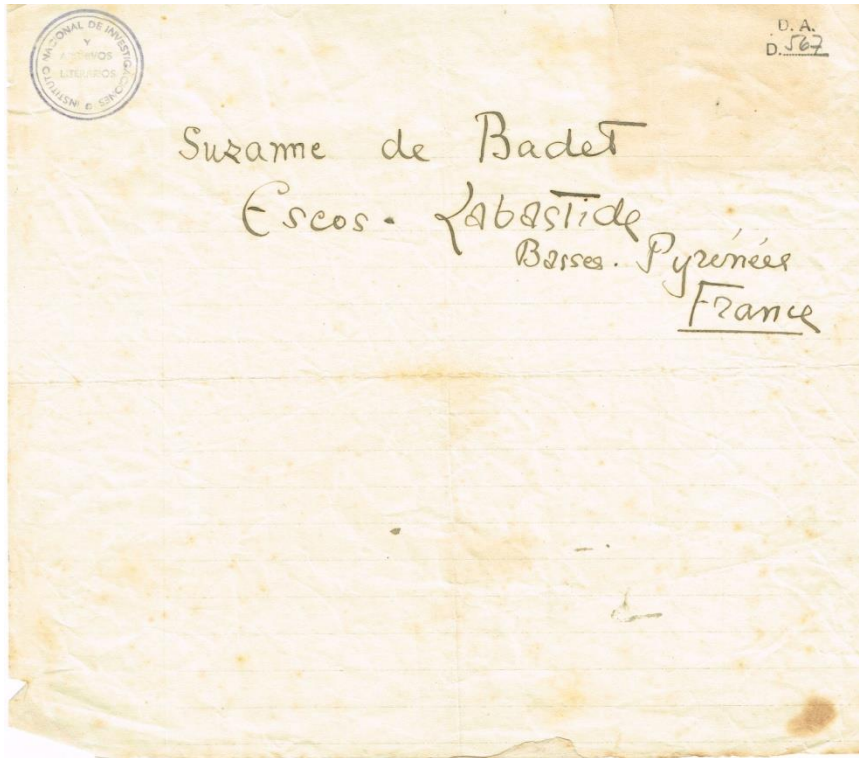 INSTITUTO NACIONAL DE INVESTIGACIONES
Y
ARCHIVOS
LITERARIOS
D. A.
D. 567
Suzanne de Badet
Escos. Labastide
Basses. Pyrénées
France